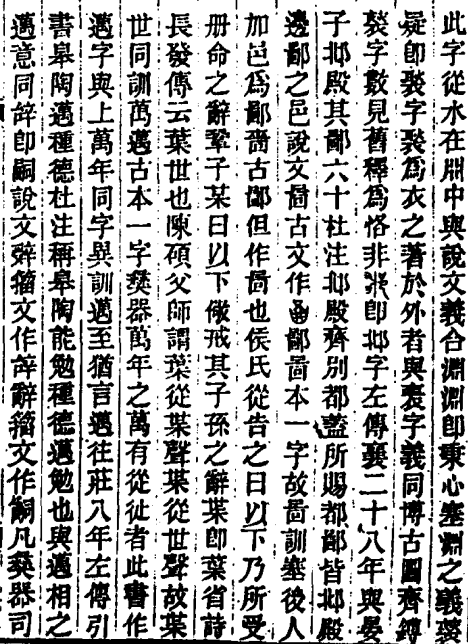 此字從水在𣶒中與說文義合淵淵卽秉心塞淵之義䙝
疑卽䙝字䙝爲衣之著於外者與表字義同博古圖齊鎛
䙝字數見舊釋爲恪非𨚍卽邶字左傳襄二十八年與晏
子邶殿其鄙六十杜注邶殿齊別都蓋所賜都鄙皆邶殿
邊鄙之邑說文啚古文作𠷎鄙啚本一字故啚訓嗇後人
加邑爲鄙嗇古鄙但作啚也矦氏從告之曰以下乃所受
冊命之辭鞏子某曰以下儆戒其子孫之辭枼卽葉省詩
長發傳云葉世也陳碩父師謂葉從枼聲枼從世聲故葉
世同訓萬邁古本一字彝器萬年之萬有從辵者此書作
邁字與上萬年同字異訓邁至猶言邁往莊八年左傳引
書皋陶邁種德杜注稱皋陶能勉種德邁勉也與邁相之
邁意同辝卽嗣說文辤籀文作辝辭籀文作嗣凡彝器司